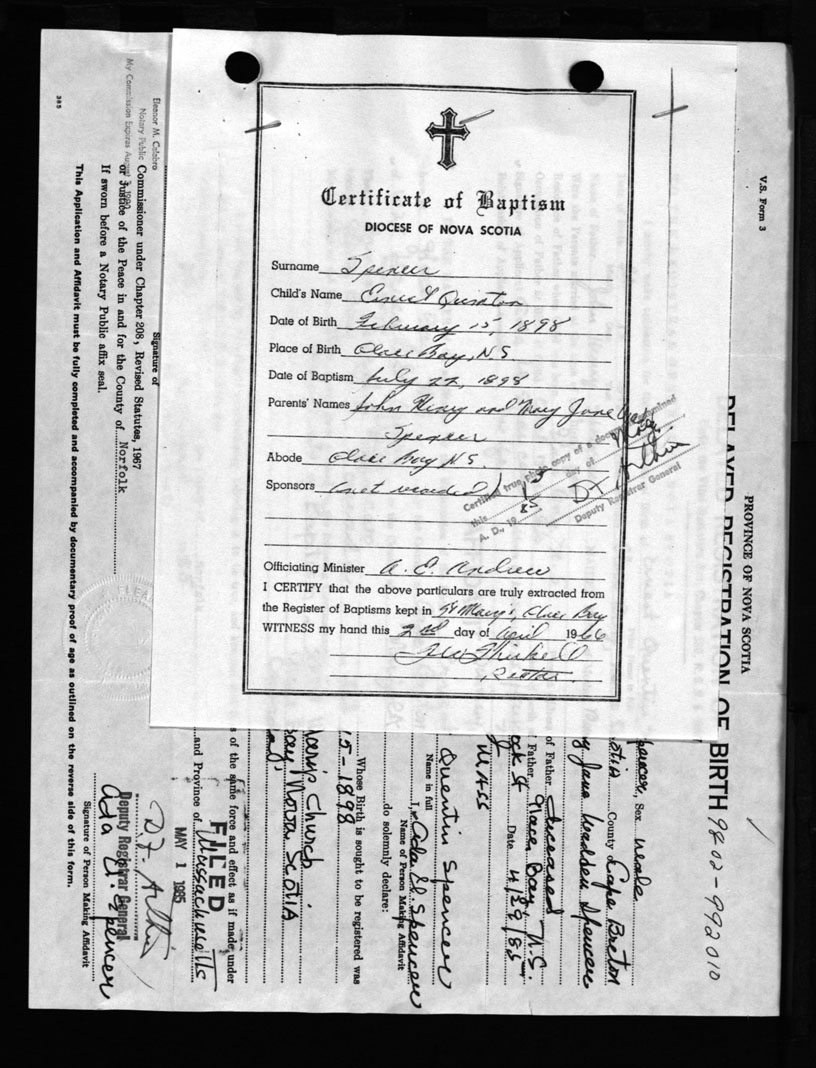 Certificate of Baptism
DIOCESE OF NOVA SCOTIA
Surname Spencer
Child's Name Ernest Quinton
Date of Birth February 15, 1898
Place of Birth Glace Bay, N.S
Date of Baptism July 22, 1898
Parents' Names John Henry and Mary Jane
Spencer
Abode Glace Bay N.S.
Sponsors (not recorded)
Certified true photo copy of a document examined
this day of
A. D., 19 85
Deputy Registrar General
Officiating Minister A. E. Andrew
I CERTIFY that the above particulars are truly extracted from
the Register of Baptisms kept in St Mary's, Glace Bay
WITNESS my hand this 2nd day of April 1966
Rector
V.S. Form 3
PROVINCE OF NOVA SCOTIA
DELAYED REGISTRATION OF BIRTH 9802-992010
Spencer, Sex Male
County Cape Breton
Jane Wadden Spencer
of Father Deceased
Father Glace Bay, N.S.
Date 4/29/85
Mass
Quentin Spencer
Name in full
I, Ada D. Spencer
Name of Person Making Affidavit
do solemnly declare:
Whose Birth is sought to be registered was
15-1898
Mary's Church
Bay Nova Scotia
s of the same force and effect as if made under
and Province of Massachusetts
FILED
MAY 1 1985
D.F. Arthur
Deputy Registrar General
Ada D. Spencer
Signature of Person Making Affidavit
Signature of
Eleanor M. Calabro
Notary Public
My Commission Expires August
Commissioner under Chapter 208, Revised Statutes, 1967
or Justice of the Peace in and for the County of Norfolk
If sworn before a Notary Public affix seal.
This Application and Affidavit must be fully completed and accompanied by documentary proof of age as outlined on the reverse side of this form.
385